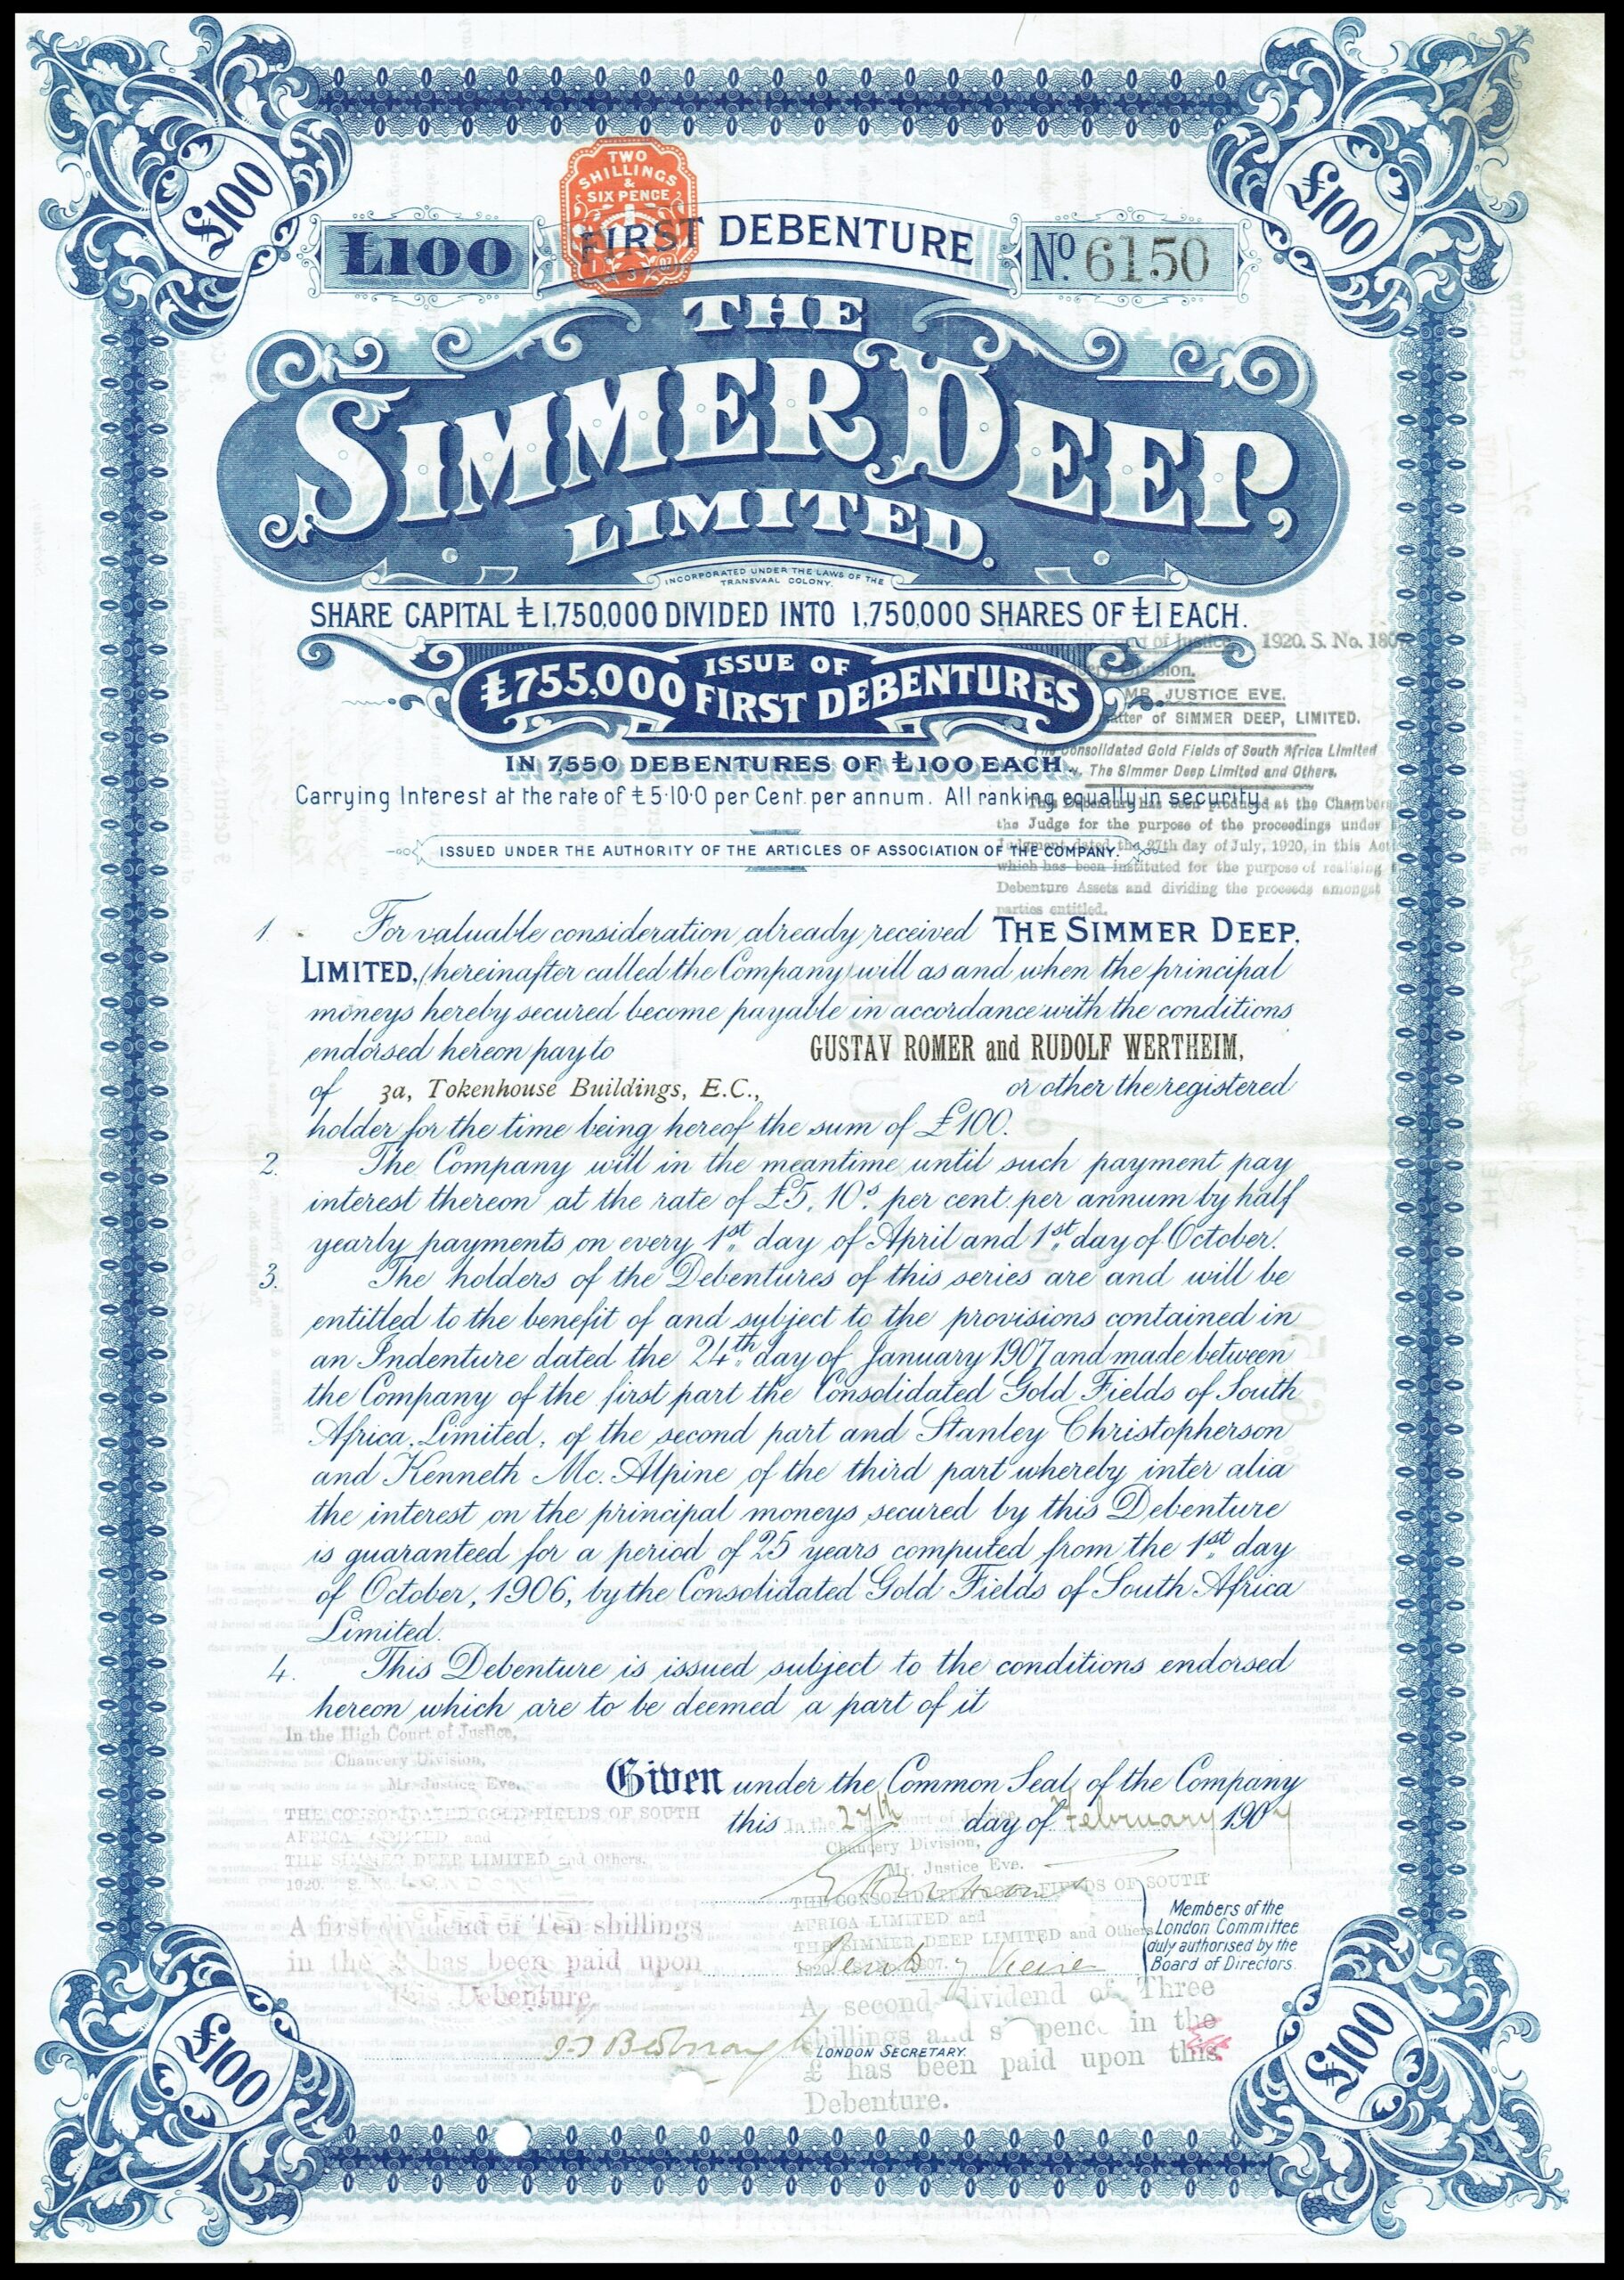 £100
£100
TWO
SHILLINGS
&
SIX PENCE
£100
FIRST DEBENTURE
No. 6150
THE
SIMMER DEEP,
LIMITED.
INCORPORATED UNDER THE LAWS OF THE
TRANSVAAL COLONY.
SHARE CAPITAL £1,750,000 DIVIDED INTO 1,750,000 SHARES OF £1 EACH.
1920. S. No.
ISSUE OF
£755,000 FIRST DEBENTURES
MR. JUSTICE EVE.
of SIMMER DEEP, LIMITED.
The Consolidated Gold Fields of South Africa Limited
v. The Simmer Deep Limited and Others.
IN 7,550 DEBENTURES OF £100 EACH.
Carrying Interest at the rate of £5·10·0 per Cent. per annum. All ranking equally in security.
This Debenture has been produced at the Chambers
the Judge for the purpose of the proceedings under
Judgment dated the 27th day of July, 1920, in this
which has been instituted for the purpose of realising
Debenture Assets and dividing the proceeds amongst
parties entitled.
ISSUED UNDER THE AUTHORITY OF THE ARTICLES OF ASSOCIATION OF THE COMPANY.
1. For valuable consideration already received THE SIMMER DEEP,
LIMITED, (hereinafter called the Company) will as and when the principal
moneys hereby secured become payable in accordance with the conditions
endorsed hereon pay to GUSTAV ROMER and RUDOLF WERTHEIM,
of 3a, Tokenhouse Buildings, E.C., or other the registered
holder for the time being hereof the sum of £100.
2. The Company will in the meantime until such payment pay
interest thereon at the rate of £5. 10s. per cent. per annum by half
yearly payments on every 1st day of April and 1st day of October.
3. The holders of the Debentures of this series are and will be
entitled to the benefit of and subject to the provisions contained in
an Indenture dated the 24th day of January 1907 and made between
the Company of the first part the Consolidated Gold Fields of South
Africa, Limited, of the second part and Stanley Christopherson
and Kenneth Mc. Alpine of the third part whereby inter alia
the interest on the principal moneys secured by this Debenture
is guaranteed for a period of 25 years computed from the 1st day
of October, 1906, by the Consolidated Gold Fields of South Africa
Limited.
4. This Debenture is issued subject to the conditions endorsed
hereon which are to be deemed a part of it
In the High Court of Justice,
Chancery Division,
Mr. Justice Eve.
THE CONSOLIDATED GOLD FIELDS OF SOUTH
AFRICA LIMITED and
THE SIMMER DEEP LIMITED and Others.
1920.
A first dividend of Ten shillings
in the £ has been paid upon
this Debenture.
Given under the Common Seal of the Company
this 27th day of February 1907
In the Court of Justice,
Chancery Division,
Mr. Justice Eve.
THE CONSOLIDATED GOLD FIELDS OF SOUTH
AFRICA LIMITED and
THE SIMMER DEEP LIMITED and Others
A second dividend of Three
shillings and sixpence in the
£ has been paid upon this
Debenture.
Members of the
London Committee
duly authorised by the
Board of Directors.
LONDON SECRETARY.
£100
£100